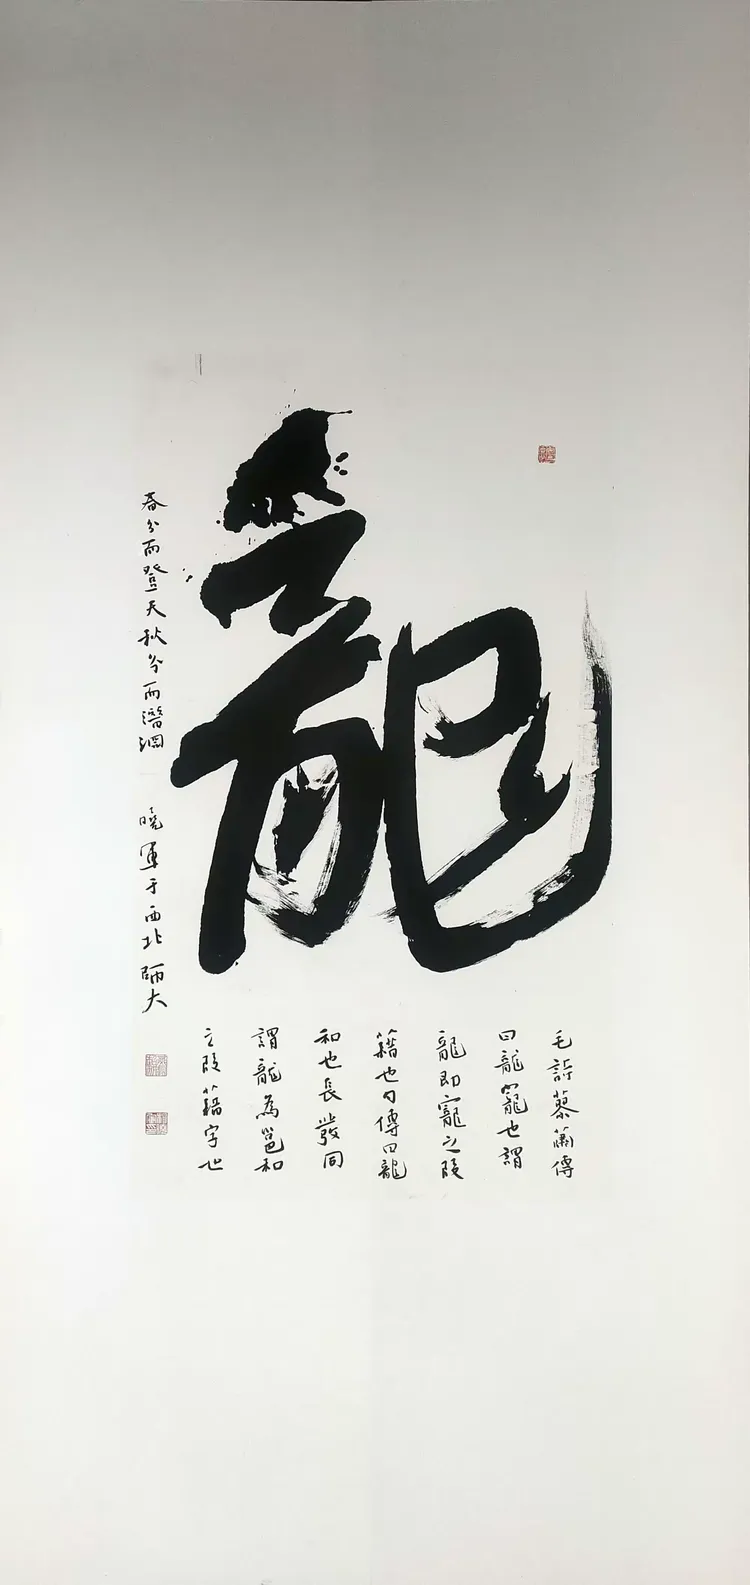 龍
毛詩蓼蕭傳
曰龍寵也謂
龍即寵之叚
藉也勺傳曰龍
和也長發同
謂龍為邕和
之叚藉字也
春分而登天秋分而潛淵
曉軍于西北師大